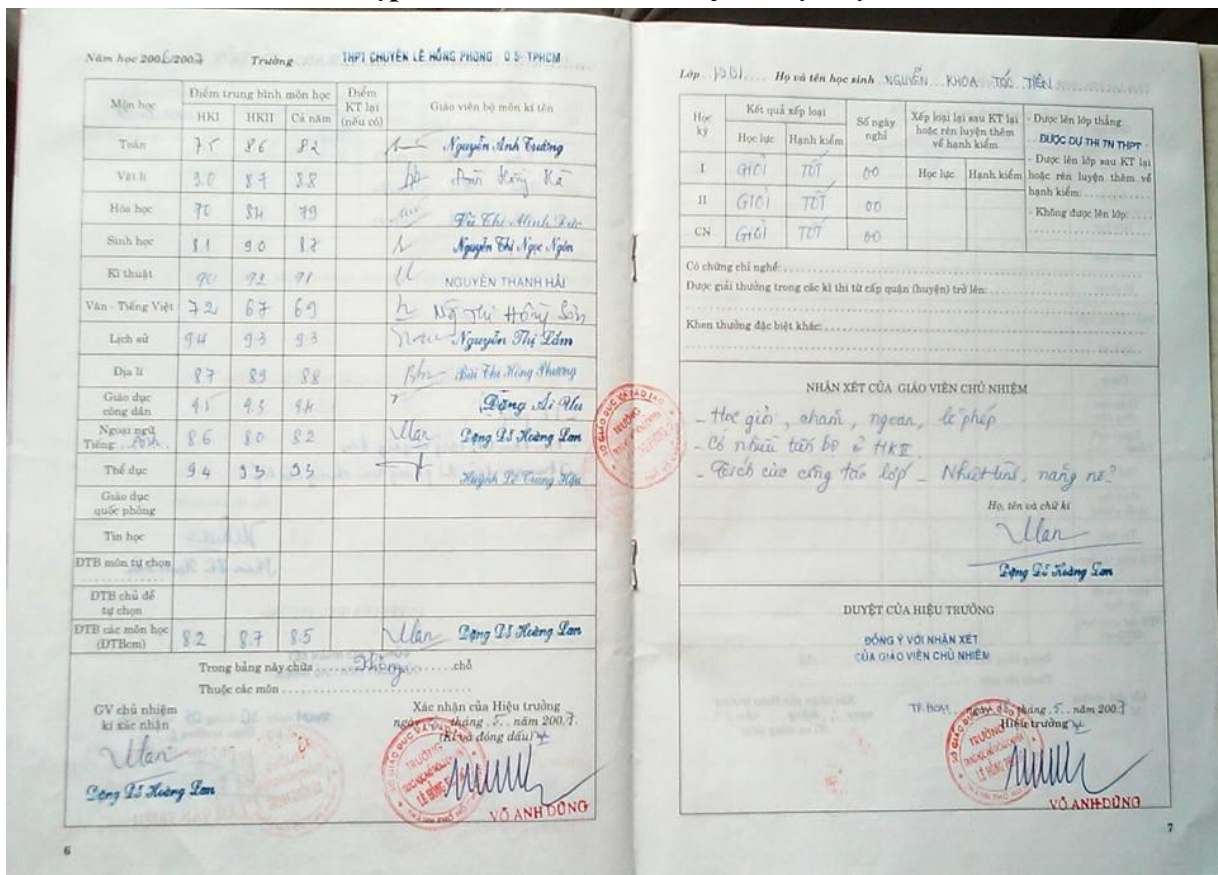 Năm học 2006/2007 Trường THPT CHUYÊN LÊ HỒNG PHONG Q 5- TPHCM
Môn học Điểm trung bình môn học Điểm KT lại (nếu có) Giáo viên bộ môn kí tên
HKI HKII Cả năm
Toán 7.5 8.6 8.2 Nguyễn Anh Trường
Vật lí 9.0 8.7 8.8
Hóa học 70 84 79 Vũ Thị Minh Đức
Sinh học 8.1 9.0 8.7 Nguyễn Thị Ngọc Ngôn
Kĩ thuật 90 92 91 NGUYỄN THANH HẢI
Văn - Tiếng Việt 72 67 69 Ng Thị Hồng
Lịch sử 94 93 93 Nguyễn Thị Lắm
Địa lí 87 89 88 Bùi Thị Hồng Phương
Giáo dục công dân 9.5 9.4 Đặng Ái
Ngoại ngữ Tiếng Anh 8.6 8.0 8.2 Đặng Đỗ Hoàng Lan
Thể dục 94 93 93 Huỳnh Trung Hậu
Giáo dục quốc phòng
Tin học
ĐTB môn tự chọn
ĐTB chủ đề tự chọn
ĐTB các môn học (ĐTBcm) 8.2 8.7 8.5 Đặng Đỗ Hoàng Lan
Trong bảng này chữa Không chỗ
Thuộc các môn
GV chủ nhiệm kí xác nhận
Đặng Đỗ Hoàng Lan
Xác nhận của Hiệu trưởng
ngày tháng 5 năm 2007
(Kí và đóng dấu)
VÕ ANH DŨNG
6
Lớp Họ và tên học sinh NGUYỄN KHOA TÓC TIÊN
Học kỳ Kết quả xếp loại Số ngày nghỉ Xếp loại lại sau KT lại hoặc rèn luyện thêm về hạnh kiểm
Học lực Hạnh kiểm Học lực Hạnh kiểm
I GIỎI TỐT 00
II GIỎI TỐT 00
CN GIỎI TỐT 00
- Được lên lớp thẳng
ĐƯỢC DỰ THI TN THPT
- Được lên lớp sau KT lại
hoặc rèn luyện thêm về
hạnh kiểm:
- Không được lên lớp:
Có chứng chỉ nghề:
Được giải thưởng trong các kì thi từ cấp quận (huyện) trở lên:
Khen thưởng đặc biệt khác:
NHẬN XÉT CỦA GIÁO VIÊN CHỦ NHIỆM
- Học giỏi, chăm, ngoan, lễ phép
- Có nhiều tiến bộ ở HKII
- Tích cực công tác lớp - Nhiệt tình, năng nổ
Họ, tên và chữ kí
Đặng Đỗ Hoàng Lan
DUYỆT CỦA HIỆU TRƯỞNG
ĐỒNG Ý VỚI NHẬN XÉT
CỦA GIÁO VIÊN CHỦ NHIỆM
TP.HCM, ngày tháng 5 năm 2007
Hiệu trưởng
VÕ ANH DŨNG
7